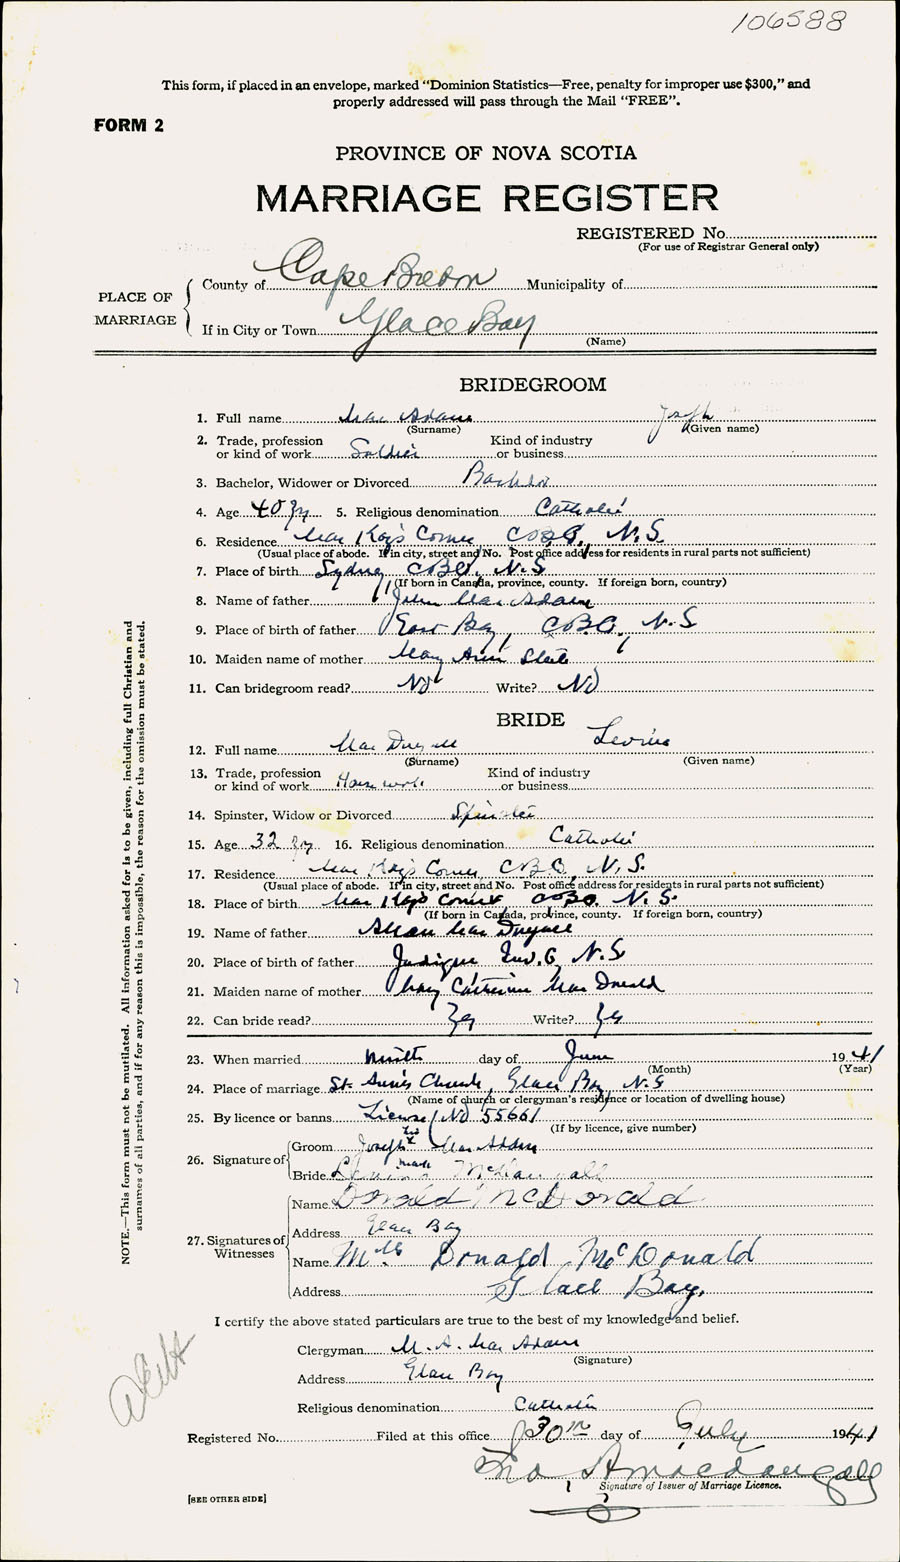 106588
This form, if placed in an envelope, marked "Dominion Statistics—Free, penalty for improper use $300," and
properly addressed will pass through the Mail "FREE".
FORM 2
PROVINCE OF NOVA SCOTIA
MARRIAGE REGISTER
REGISTERED No.
(For use of Registrar General only)
PLACE OF MARRIAGE
County of Cape Breton Municipality of
If in City or Town Glace Bay
(Name)
BRIDEGROOM
1. Full name Mac Adam Joseph
(Surname) (Given name)
2. Trade, profession Kind of industry
or kind of work Soldier or business
3. Bachelor, Widower or Divorced Bachelor
4. Age 40 yrs 5. Religious denomination Catholic
6. Residence Near Kays Corner C.B.Co., N.S.
(Usual place of abode. If in city, street and No. Post office address for residents in rural parts not sufficient)
7. Place of birth Sydney, C.B.Co., N.S
(If born in Canada, province, county. If foreign born, country)
8. Name of father John Mac Adam
9. Place of birth of father East Bay, C.B.Co., N.S
10. Maiden name of mother Mary Ann
11. Can bridegroom read? No Write? No
BRIDE
12. Full name Mac Dugall
(Surname) (Given name)
13. Trade, profession Kind of industry
or kind of work Housework or business
14. Spinster, Widow or Divorced Spinster
15. Age 32 yrs 16. Religious denomination Catholic
17. Residence Near Kays Corner, C.B.Co, N.S.
(Usual place of abode. If in city, street and No. Post office address for residents in rural parts not sufficient)
18. Place of birth Near Kays Corner, C.B.Co. N.S.
(If born in Canada, province, county. If foreign born, country)
19. Name of father Allan Mac Dugall
20. Place of birth of father Judique Inv. Co, N.S
21. Maiden name of mother Mary Catherine Mac Donald
22. Can bride read? Yes Write? Yes
23. When married Ninth day of June 1941
(Month) (Year)
24. Place of marriage St. Ann's Church, Glace Bay, N.S
(Name of church or clergyman's residence or location of dwelling house)
25. By licence or banns License No 55661
(If by licence, give number)
26. Signature of
Groom Joseph his X mark Mac Adam
Bride
27. Signatures of Witnesses
Name Donald McDonald
Address Glace Bay
Name Mrs. Donald McDonald
Address Glace Bay.
I certify the above stated particulars are true to the best of my knowledge and belief.
Clergyman M. A. Mac Adam
(Signature)
Address Glace Bay
Religious denomination Catholic
Registered No. Filed at this office 30th day of July 1941
A Macdougall
Signature of Issuer of Marriage Licence.
[SEE OTHER SIDE]
NOTE.—This form must not be mutilated. All information asked for is to be given, including full Christian and
surnames of all parties, and if for any reason this is impossible, the reason for the omission must be stated.